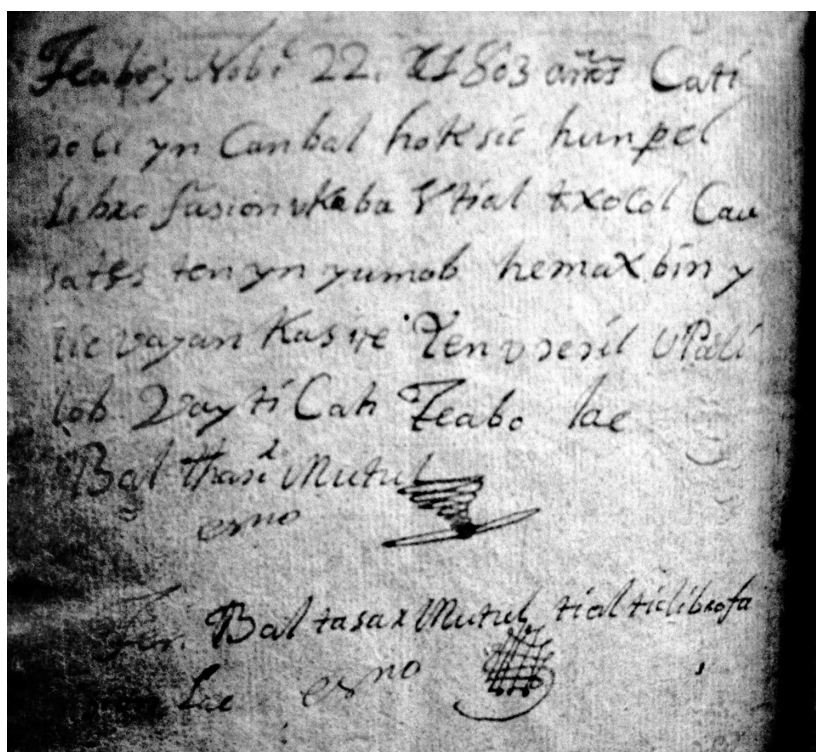 Teabo y Nobi.e 22. 1803 años Cati
yn Canbal hoksic hunpel
Libro fasion vkaba Vtial txocol Cau
sates ten yn yumob hemax bin y
lic vayan Kasite Ten v Pali
lob Vay ti Cah Teabo lae
Balthasar Mutul
esno
Baltasar Mutul tial tic libro fa
Lae esno